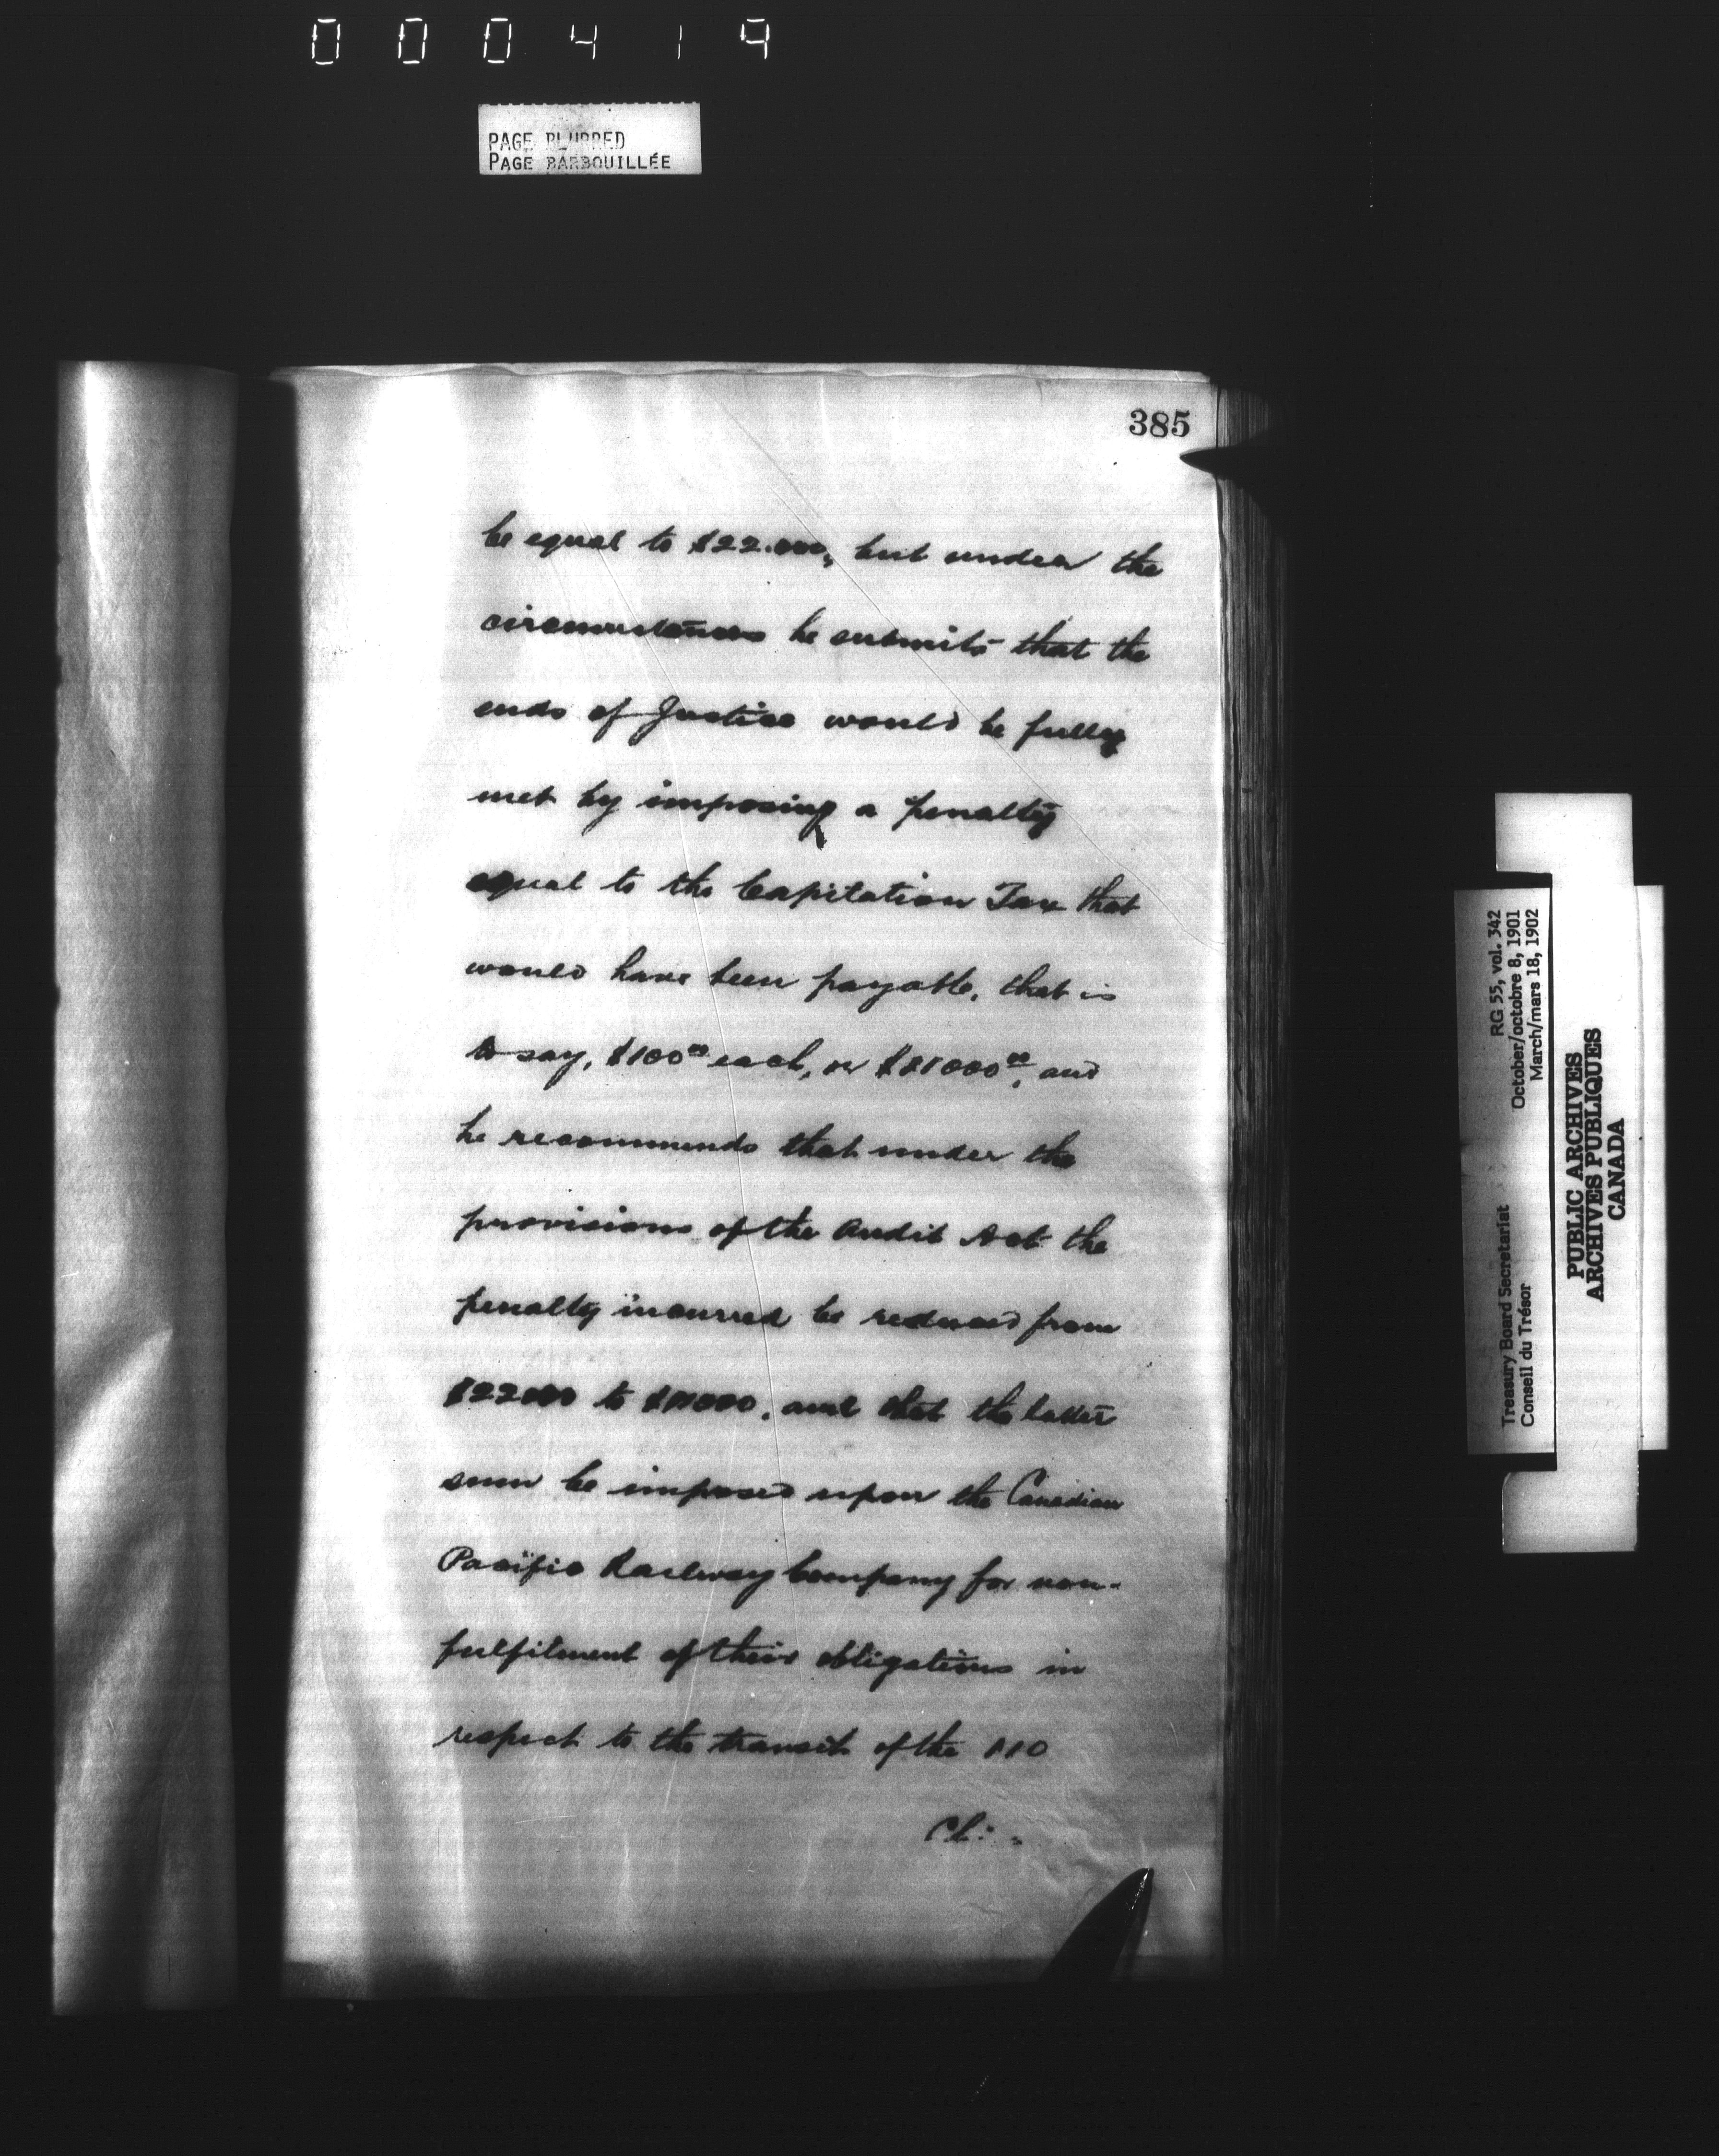 000419
PAGE BLURRED
PAGE BARBOUILLÉE
385
be equal to $22.000, but under the
circumstances he submits that the
ends of Justice would be fully
met by imposing a penalty
equal to the Capitation Tax that
would have been payable, that is
to say, $100.00 each, or $11000.00, and
he recommends that under the
provisions of the Audit Act the
penalty incurred be reduced from
$22000 to $11000, and that the latter
sum be imposed upon the Canadian
Pacific Railway Company for non-
fulfilment of their obligations in
respect to the transit of the 110
Chi
Treasury Board Secretariat RG 55, vol. 342
Conseil du Trésor October/octobre 8, 1901
March/mars 18, 1902
PUBLIC ARCHIVES
ARCHIVES PUBLIQUES
CANADA